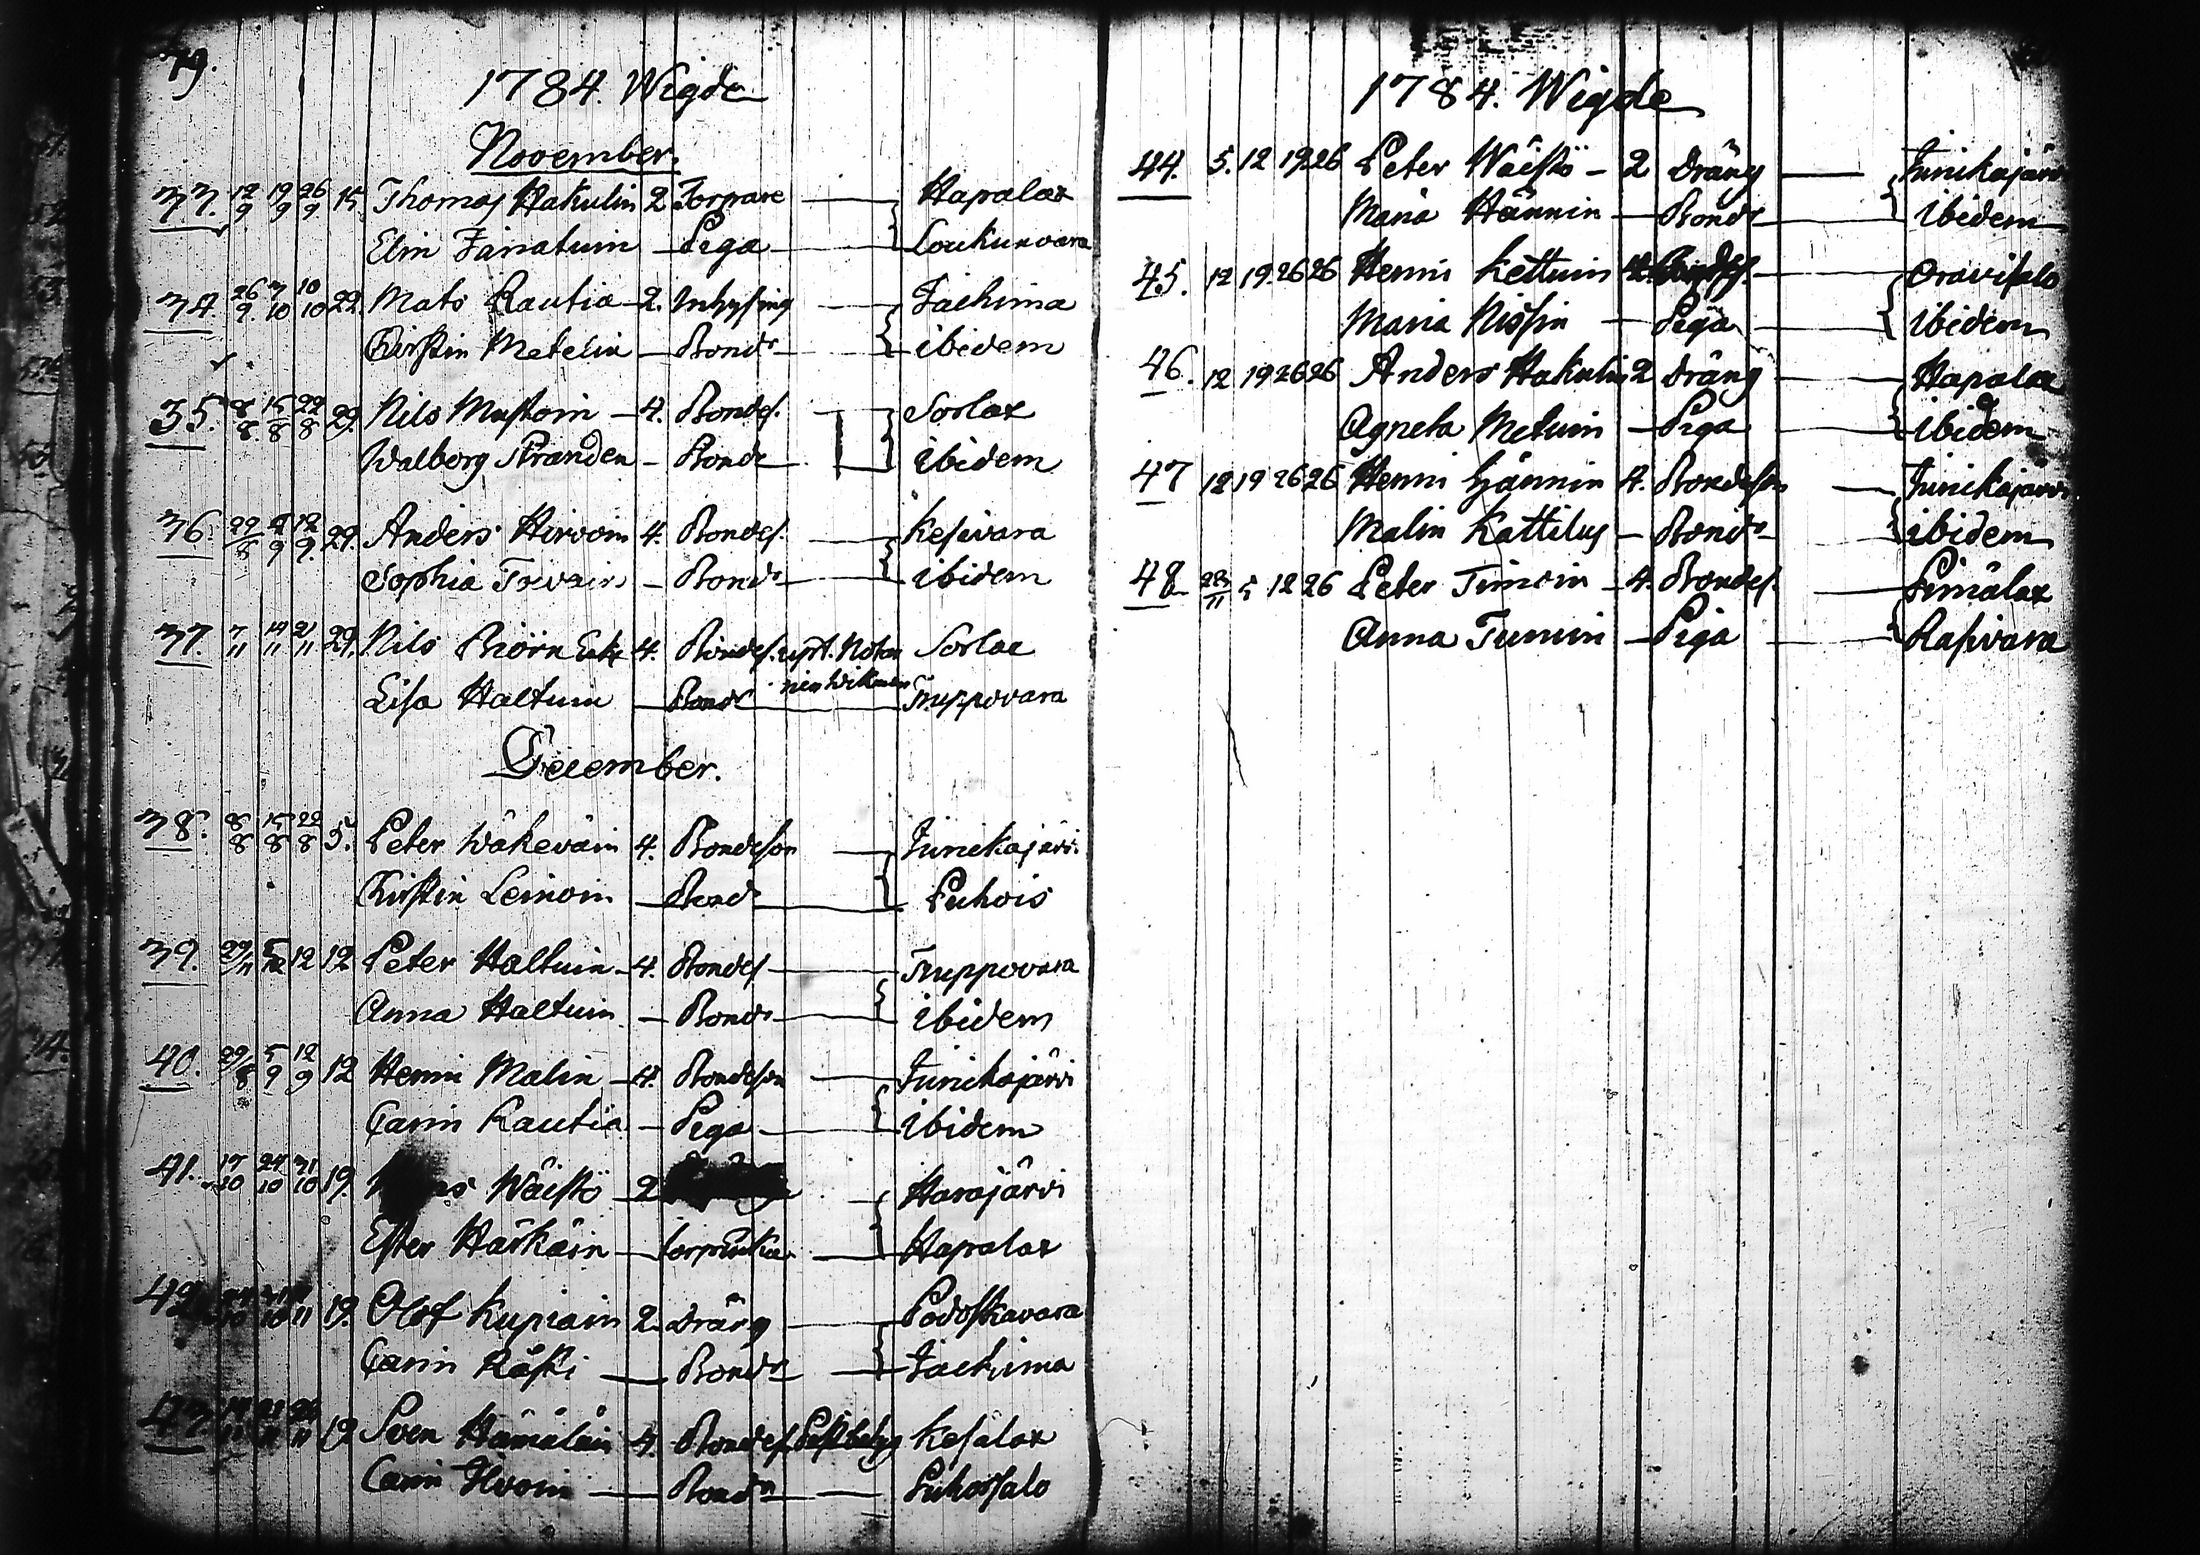 79.
1784. Wigde
November.
33. 12/9 19/9 26/9 15. Thomas Hakulin 2 Torpare Hapalax
Elin Lou­kunvara
34. 26/9. 3/10 10/10 22. Mats Rautia 2. Inhysing Jachima
Kirstin Metelin Bondr ibidem
35. 8/8. 15/8 22/8 29. Nils Mustoin 4. Bondes. Sorlax
Walborg Stranden Bondr ibidem
36. 29/8 5/9 12/9. 29. Anders Hirvoin 4. Bondes. Kesivara
Sophia Bondr ibidem
37. 7/11 14/11 21/11 29. Nils Biörn 4. Bondes. Sorlax
Lisa Haltuin Bondr Truppovara
December.
38. 8/8 15/8 22/8 5. Peter Wäkeväin 4. Bondeson Junickajärvi
Kirstin Leinoin Bondr Puhois
39. 29/11 5/12 12 12 Peter Haltuin 4. Bondes Truppovara
Anna Haltuin Bondr ibidem
40. 29/8 5/9 12/9 12 Henric Malin 4. Bondeson Junickajärvi
Carin Rautia Piga ibidem
41. 17/10 24/10 31/10 19. Wäistö 2 Harajärvi
Ester Härkäin torpareka Hapalax
42. 19. Olof Kupiain 2. Dräng Podoskavara
Carin Räski Bondr Jachima
43. 19 Sven Hämäläin 4. Bondes. Kesälax
Carin Bondr Puhossalo
1784. Wigde
44. 5. 12 19 26 Peter Wäistö 2 Dräng Junickajärvi
Maria Hännin Bondr ibidem
45. 12 19. 26 26 Henric Kettuin Oravisalo
Maria Nissin Piga ibidem
46. 12 19 26 26 Anders Hakulin 2 Dräng Hapalax
Agneta Metuin Piga ibidem
47 12 19 26 26 Henric Hännin 4. Bondeson Junickajärvi
Malin Kattilus Bondr ibidem
48 28/11 5 12 26 Peter Timoin 4. Bondes. Pimälax
Anna Piga Rasivara